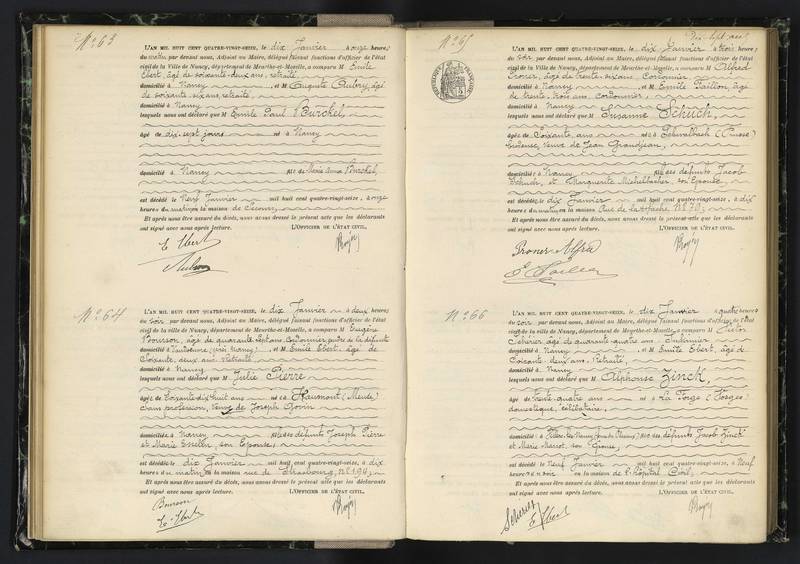 N° 63
L'AN MIL HUIT CENT QUATRE-VINGT-SEIZE, le dix Janvier à onze heures
du matin par devant nous, Adjoint au Maire, délégué faisant fonctions d'officier de l'état
civil de la Ville de Nancy, département de Meurthe-et-Moselle, a comparu M Emile
Ebert, âgé de soixante-deux ans, retraité
domicilié à Nancy et M Auguste Aubry, âgé
de soixante six ans, retraité
domicilié à Nancy
lesquels nous ont déclaré que M Emile Paul Burckel
âgé de dix-sept jours né à Nancy
domicilié à Nancy fils de Marie Anna Burckel
est décédé le Neuf Janvier mil huit cent quatre-vingt-seize, à onze
heures du matin en la maison de Secours
Et après nous être assuré du décès, nous avons dressé le présent acte que les déclarants
ont signé avec nous après lecture. L'OFFICIER DE L'ÉTAT CIVIL,
E Ebert
Aubry
N° 64
L'AN MIL HUIT CENT QUATRE-VINGT-SEIZE, le dix Janvier à deux heures
du soir par devant nous, Adjoint au Maire, délégué faisant fonctions d'officier de l'état
civil de la ville de Nancy, département de Meurthe-et-Moselle, a comparu M Eugène
Bourson, âgé de quarante sept ans, cordonnier, gendre de la défunte
domicilié à Vandoeuvre (près Nancy) et M Emile Ebert, âgé de
Soixante deux ans, Retraité
domicilié à Nancy
lesquels nous ont déclaré que M Julie Pierre
âgée de Soixante dix huit ans née à Haumont (Meuse)
Sans profession, Veuve de Joseph
domiciliée à Nancy fille des défunts Joseph Pierre
et Marie son Epouse
est décédée le dix Janvier mil huit cent quatre-vingt-seize, à dix
heures du matin en la maison rue de Strasbourg, N° 196
Et après nous être assuré du décès, nous avons dressé le présent acte que les déclarants
ont signé avec nous après lecture. L'OFFICIER DE L'ÉTAT CIVIL,
Bourson
E Ebert
Dix-sept
N° 65
L'AN MIL HUIT CENT QUATRE-VINGT-SEIZE, le dix Janvier à trois heures
du soir par devant nous, Adjoint au Maire, délégué faisant fonctions d'officier de l'état
civil de la Ville de Nancy, département de Meurthe-et-Moselle, a comparu M Alfred
Proner, âgé de trente six ans, Cordonnier
domicilié à Nancy et M Emile Paillon, âgé
de trente trois ans, cordonnier
domicilié à Nancy
lesquels nous ont déclaré que M Susanne Schuch,
âgée de Soixante ans née à Schwalbach (Prusse)
Veuve de Jean Grandjean,
domiciliée à Nancy fille des défunts Jacob
Schuch, et Marguerite Michelbacher, son Epouse
est décédée le dix Janvier mil huit cent quatre-vingt-seize, à dix
heures du matin en la maison Rue de N° 70
Et après nous être assuré du décès, nous avons dressé le présent acte que les déclarants
ont signé avec nous après lecture. L'OFFICIER DE L'ÉTAT CIVIL,
Proner Alfred
N° 66
L'AN MIL HUIT CENT QUATRE-VINGT-SEIZE, le dix Janvier à quatre heures
du soir par devant nous, Adjoint au Maire, délégué faisant fonctions d'officier de l'état
civil de la Ville de Nancy, département de Meurthe-et-Moselle, a comparu M Victor
Scherier, âgé de quarante-quatre ans Infirmier
domicilié à Nancy et M Emile Ebert, âgé de
Soixante deux ans, Retraité,
domicilié à Nancy
lesquels nous ont déclaré que M Alphonse Zinck,
âgé de trente-quatre ans né à La Forge (Vosges)
domestique, célibataire,
domicilié à fils des défunts Jacob Zinck
et Marie son Epouse
est décédé le Neuf Janvier mil huit cent quatre-vingt-seize, à Neuf
heures du soir en la maison de l'Hôpital Civil
Et après nous être assuré du décès, nous avons dressé le présent acte que les déclarants
ont signé avec nous après lecture. L'OFFICIER DE L'ÉTAT CIVIL,
Scherier
E Ebert